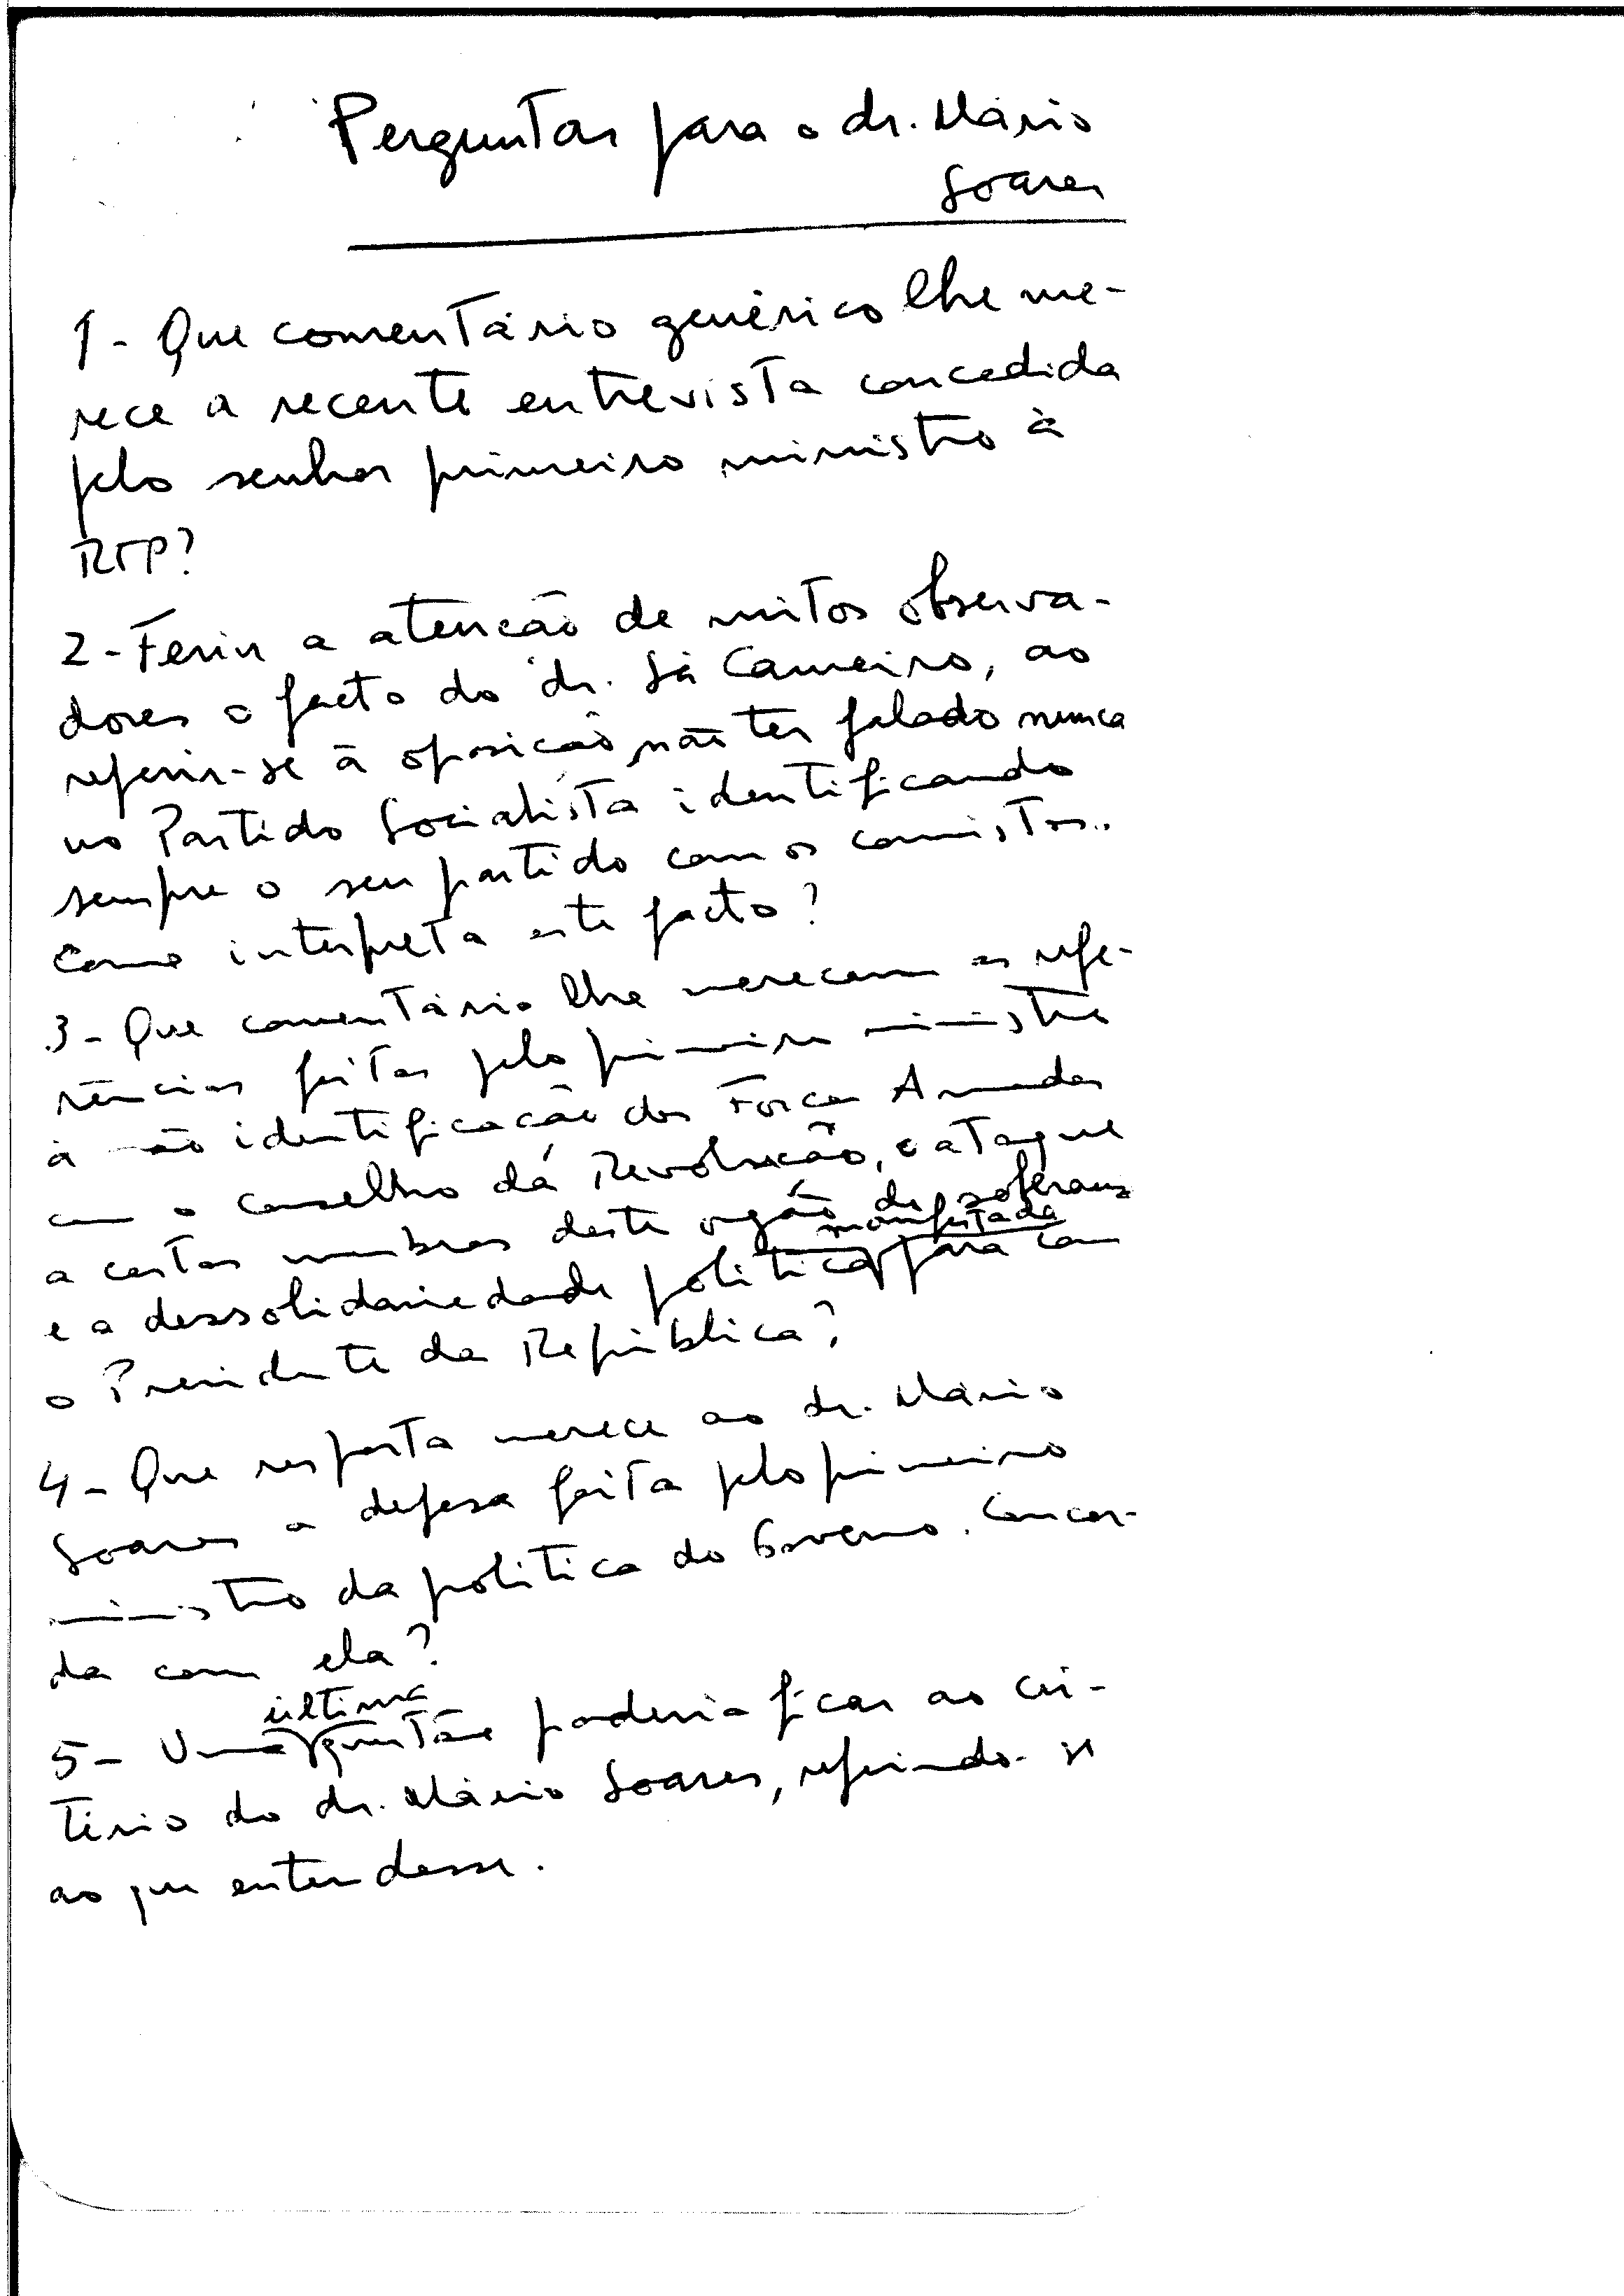 Perguntas para o dr. Mário
Soares
1 - Que comentário genérico lhe me-
rece a recente entrevista concedida
pelo senhor primeiro ministro à
RTP?
2 - Feriu a atenção de muitos observa-
dores o facto do dr. Sá Carneiro, ao
referir-se à oposição não ter falado nunca
no Partido Socialista identificando
sempre o seu partido com os comistas..
Como interpreta este facto?
3 - Que comentário lhe merecem as refe-
rências feitas pelo primeiro ministro
à não identificação das Forças Armadas
com o Conselho da Revolução, o ataque
a certos membros deste orgão de soberania
manifestada
e a dessolidariedade política para com
o Presidente da República?
4 - Que resposta merece ao dr. Mário
Soares a defesa feita pelo primeiro
ministro da política do Governo. Concor-
da com ela?
última
5 - Uma questão poderia ficar ao cri-
tério do dr. Mário Soares, referindo-se
ao que entendesse.